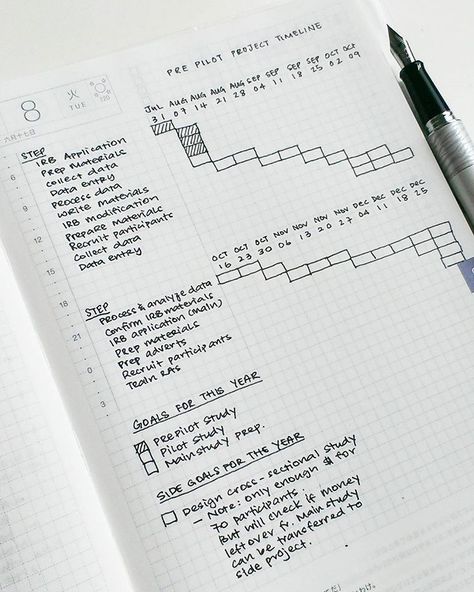 PRE PILOT PROJECT TIMELINE
8
火
TUE
六月十七日
JUL AUG AUG AUG AUG SEP SEP SEP SEP OCT OCT
31 07 14 21 28 04 11 18 25 02 09
STEP
IRB Application
Prep Materials
Collect data
Data entry
Process data
Write materials
IRB modification
Prepare Materials
Recruit participants
Collect Data
Data Entry
6
9
12
15
18
21
0
3
OCT OCT OCT NOV NOV NOV NOV DEC DEC DEC DEC
16 23 30 06 13 20 27 04 11 18 25
STEP
Process & analyze data
Confirm IRB materials
IRB application (main)
Prep materials
Prep adverts
Recruit participants
Train RAs
GOALS FOR THIS YEAR
Prepilot study
Pilot study
Main study prep.
SIDE GOALS FOR THE YEAR
Design cross-sectional study
- Note: only enough $ for
70 participants.
But will check if money
left over fr. Main study
can be transferred to
side project.